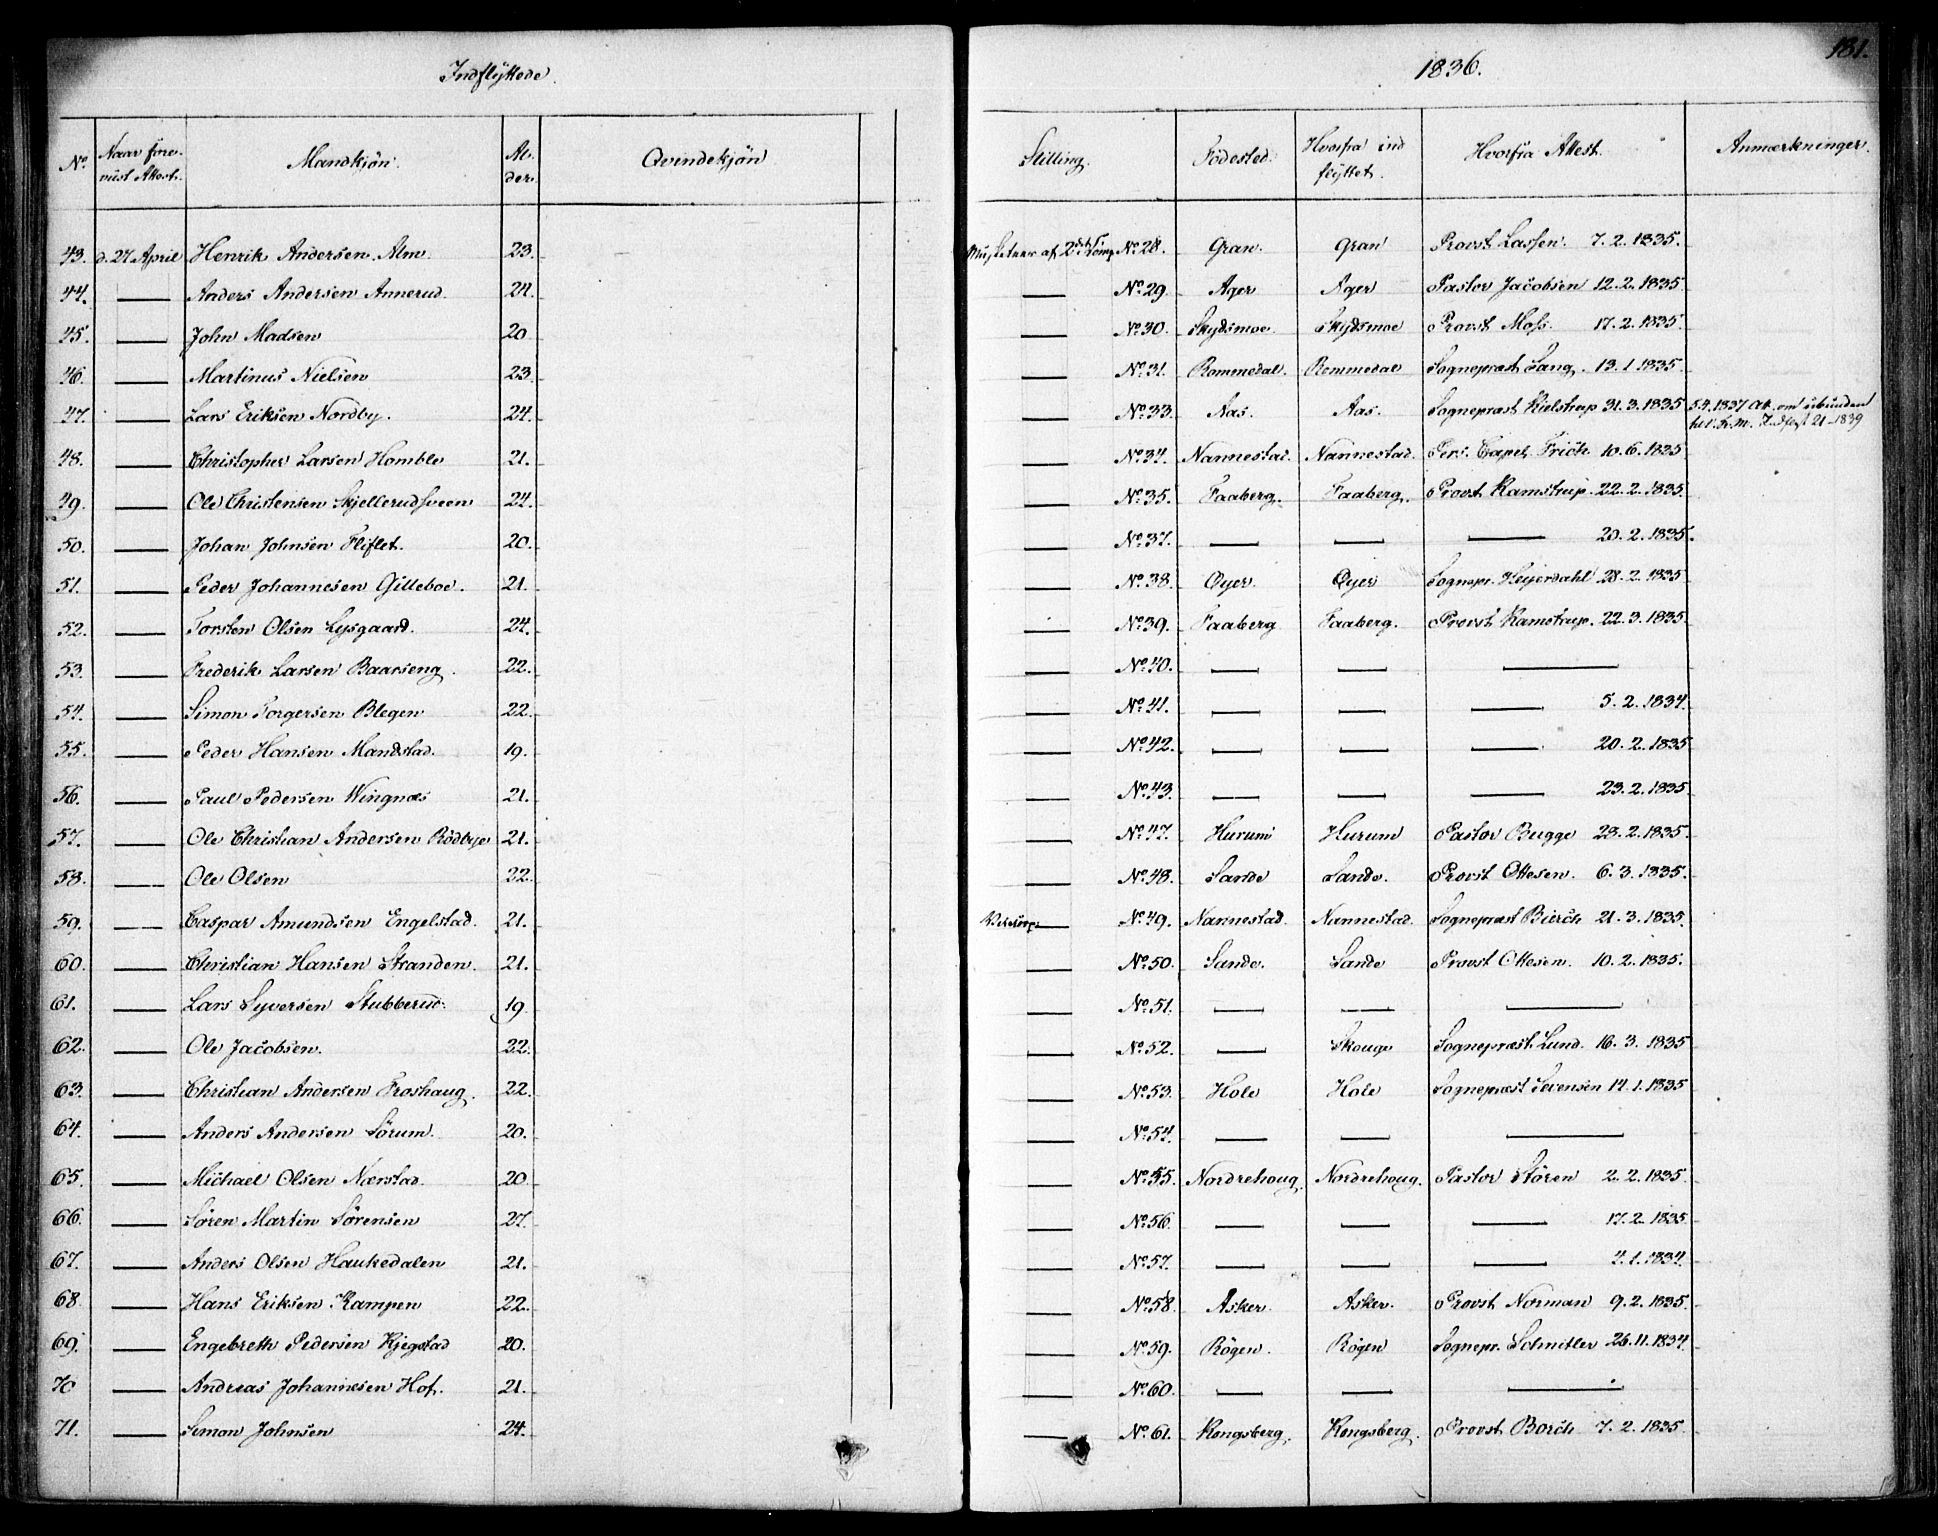 Indflyttede 1836. 181.
No. Naar fore- viist Attest. Mandkjön. Al- der. Qvindekjön Stilling. Födested. Hvorfra ind flyttet. Hvorfra Attest. Anmærkninger.
43. d. 27 April Henrik Andersen Alm 23. Musketeer af 2det Komp. No. 28. Gran. Gran Provst Lassen. 7. 2. 1835.
44. — Anders Andersen Annerud. 24. — No. 29. Ager Ager Pastor Jacobsen 12. 2. 1835.
45. — John Madsen 20 — No. 30. Skydsmoe. Skydsmoe Provst Moss. 17. 2. 1835.
46. — Martinus Nielsen 23. — No. 31. Rommedal. Rommedal Sognepræst Lang. 13. 1 1835.
47. — Lars Eriksen Nordby. 24. — No. 33. Aas. Aas. Sognepræst Kielstrup 31. 3. 1835 5.4.1837 At. om ubunden
til 21-1839
48. — Christopher Larsen Homble 21. — No. 34. Nannestad. Nannestad. Pers. Capel. Friöh 10. 6. 1835
49. — Ole Christensen Skjellerudsveen 24. — No. 35. Faaberg. Faaberg. Provst Ramstrup. 22. 2. 1835.
50. — Johan Johnsen Fliflet. 20. — No. 37. — — — 20. 2. 1835.
51. — Peder Johannesen Gilleboe. 21. — No. 38. Öyer. Öyer Sognepr. Heyerdahl 28. 2. 1835
52. — Torsten Olsen Lysgaard. 24. — No. 39. Faaberg Faaberg. Provst Ramstrup. 22. 3. 1835.
53. — Frederik Larsen Baarseng. 22. — No. 40. — — —
54. — Simon Torgersen Blegen 22. — No. 41. — — — 5. 2. 1834.
55. — Peder Hansen Mandstad. 19. — No. 42. — — — 20. 2. 1835
56. — Paul Pedersen Wingnæs 21. — No. 43. — — — 23. 2. 1835
57. — Ole Christian Andersen Rödbye 21. — No. 47. Hurum Hurum Pastor Bugge 23. 2. 1835.
58. — Ole Olsen 22. — No. 48. Sande Sande. Provst Ottesen. 6. 3. 1835.
59. — Caspar Amundsen Engelstad. 21. — No. 49. Nannestad. Nannestad. Sognepræst Bierch 21. 3. 1835.
60. — Christian Hansen Stranden. 21. — No. 50. Sande. Sande Provst Ottesen. 10. 2. 1835.
61. — Lars Syversen Stubberud. 19 — No. 51. — — —
62. — Ole Jacobsen. 22. — No. 52. — Skouge Sognepræst Lund. 16. 3. 1835
63. — Christian Andersen Froshaug. 22. — No. 53. Hole Hole Sognepræst Sevensen 14. 1. 1835
64. — Anders Andersen Sörum. 20. — No. 54. — — —
65. — Michael Olsen Nærstad. 20 — No. 55. Nordrehoug. Nordrehoug. Pastor Stören 2. 2. 1835.
66. — Sören Martin Sörensen 27. — No. 56. — — — 17. 2. 1835
67. — Anders Olsen Haukedalen 21. — No. 57. — — — 4. 1. 1834.
68. — Hans Eriksen Kampen 22. — No. 58. Asker. Asker. Provst Norman 9. 2. 1835.
69. — Engebreth Pedersen Kjegstad 20. — No. 59. Rögen. Rögen Sognepr. Schnitler 26. 11. 1834.
70 — Andreas Johannesen Hof. 21. — No. 60. — — —
71. — Simon Johnsen 24. — No. 61. Kongsberg. Kongsberg. Provst Borch 7. 2. 1835.